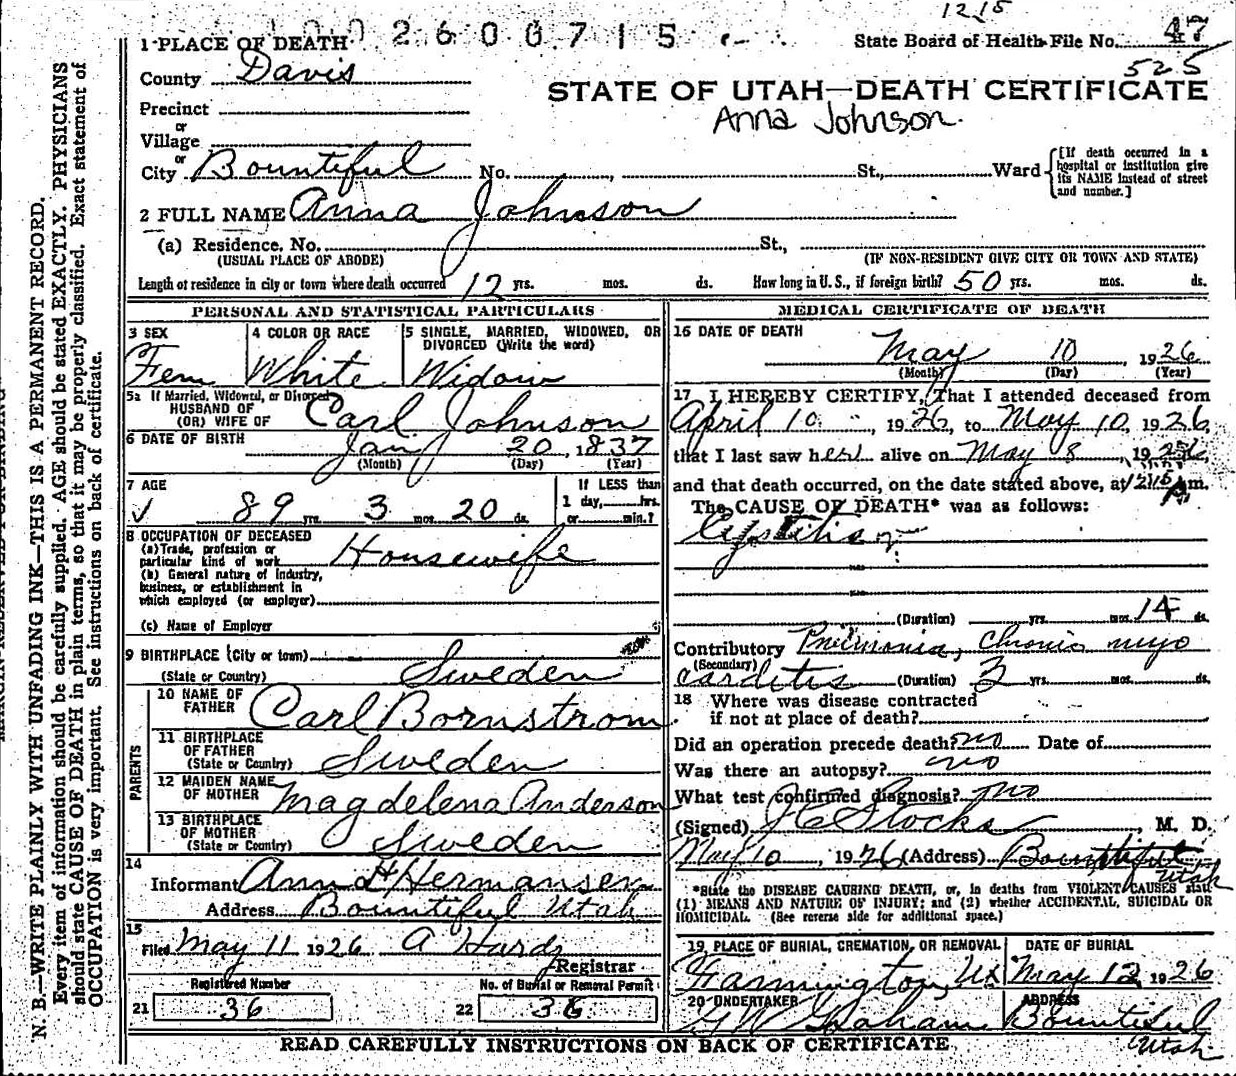 1215
2600715
State Board of Health File No. 47
525
1 PLACE OF DEATH
County Davis
STATE OF UTAH—DEATH CERTIFICATE
Anna Johnson.
Precinct
or
Village
or
City Bountiful No. , St., Ward
[If death occurred in a hospital or institution give its NAME instead of street and number.]
2 FULL NAME Anna Johnson
(a) Residence, No. St.,
(USUAL PLACE OF ABODE) (IF NON-RESIDENT GIVE CITY OR TOWN AND STATE)
Length of residence in city or town where death occurred 12 yrs. mos. ds. How long in U. S., if foreign birth? 50 yrs. mos. ds.
PERSONAL AND STATISTICAL PARTICULARS
3 SEX
Fem
4 COLOR OR RACE
White
5 SINGLE, MARRIED, WIDOWED, OR
DIVORCED (Write the word)
Widow
5a If Married, Widowed, or Divorced
HUSBAND OF
(OR) WIFE OF Carl Johnson
6 DATE OF BIRTH Jan 20, 1837
(Month) (Day) (Year)
7 AGE
89 yrs. 3 mos. 20 ds.
If LESS than
1 day, hrs.
or min.?
8 OCCUPATION OF DECEASED
(a) Trade, profession or
particular kind of work Housewife
(b) General nature of Industry,
business, or establishment in
which employed (or employer)
(c) Name of Employer
9 BIRTHPLACE (City or town)
(State or Country) Sweden
PARENTS
10 NAME OF
FATHER Carl Bornstrom
11 BIRTHPLACE
OF FATHER
(State or Country) Sweden
12 MAIDEN NAME
OF MOTHER Magdelena Anderson
13 BIRTHPLACE
OF MOTHER
(State or Country) Sweden
14
Informant Anna H Hermansen
Address Bountiful Utah
15
Filed May 11 1926 A Hardy
Registrar
Registered Number
21 36
No. of Burial or Removal Permit
22 36
MEDICAL CERTIFICATE OF DEATH
16 DATE OF DEATH
May 10, 1926
(Month) (Day) (Year)
17 I HEREBY CERTIFY, That I attended deceased from
April 10, 1926, to May 10, 1926,
that I last saw her alive on May 8, 1926,
and that death occurred, on the date stated above, at 1215 A m.
The CAUSE OF DEATH* was as follows:
Cystitis
(Duration) yrs. mos. 14 ds.
Contributory Pneumonia, Chronic myo
(Secondary)
carditis (Duration) 3 yrs. mos. ds.
18 Where was disease contracted
if not at place of death?
Did an operation precede death? no Date of
Was there an autopsy? no
What test confirmed diagnosis? no
(Signed) J C Stocks, M. D.
May 10, 1926 (Address) Bountiful
Utah
*State the DISEASE CAUSING DEATH, or, in deaths from VIOLENT CAUSES state
(1) MEANS AND NATURE OF INJURY; and (2) whether ACCIDENTAL, SUICIDAL OR
HOMICIDAL. (See reverse side for additional space.)
19 PLACE OF BURIAL, CREMATION, OR REMOVAL
Farmington, Ut
DATE OF BURIAL
May 12, 1926
20 UNDERTAKER
G W Graham
ADDRESS
Bountiful
Utah
READ CAREFULLY INSTRUCTIONS ON BACK OF CERTIFICATE
N. B.—WRITE PLAINLY WITH UNFADING INK—THIS IS A PERMANENT RECORD.
Every item of information should be carefully supplied. AGE should be stated EXACTLY. PHYSICIANS
should state CAUSE OF DEATH in plain terms, so that it may be properly classified. Exact statement of
OCCUPATION is very important. See instructions on back of certificate.